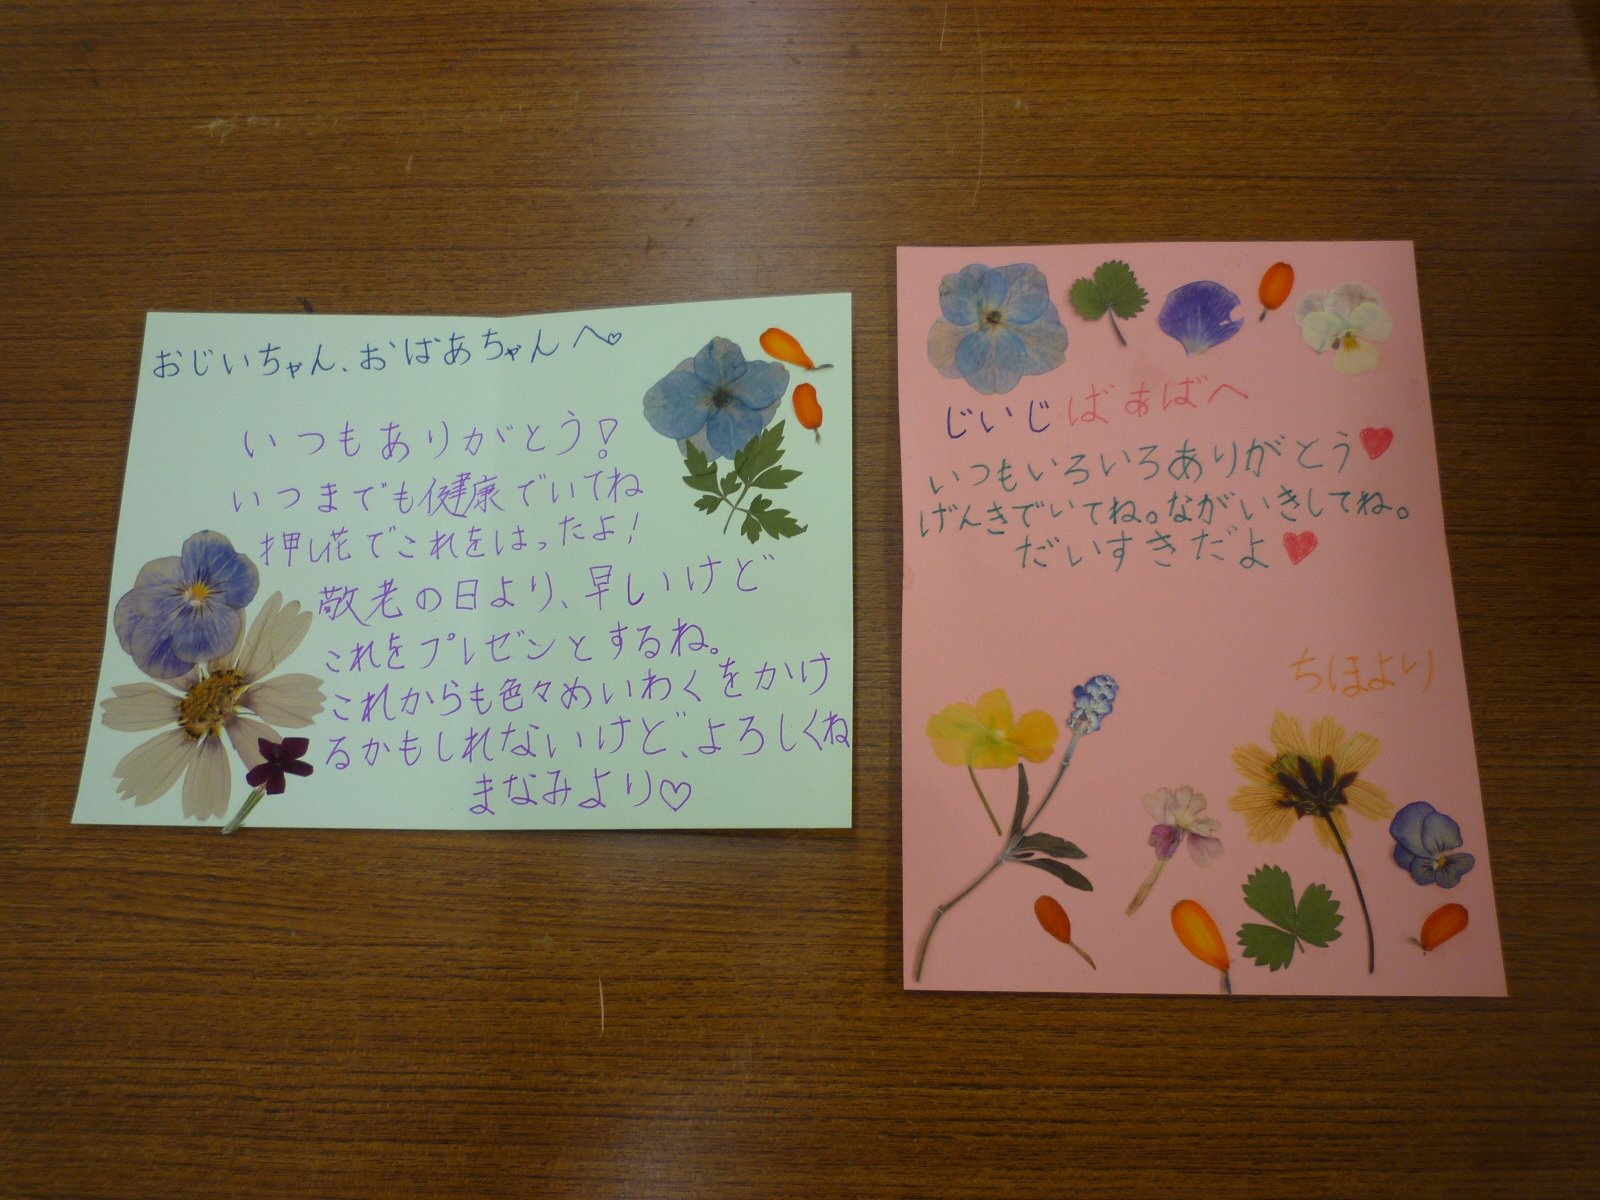 おじいちゃん、おばあちゃんへ♡
いつもありがとう!
いつまでも健康でいてね
押し花でこれをはったよ!
敬老の日より、早いけど
これをプレゼンとするね。
これからも色々めいわくをかけ
るかもしれないけど、よろしくね
まなみより♡
じいじばぁばへ
いつもいろいろありがとう♥
げんきでいてね。ながいきしてね。
だいすきだよ♥
ちほより